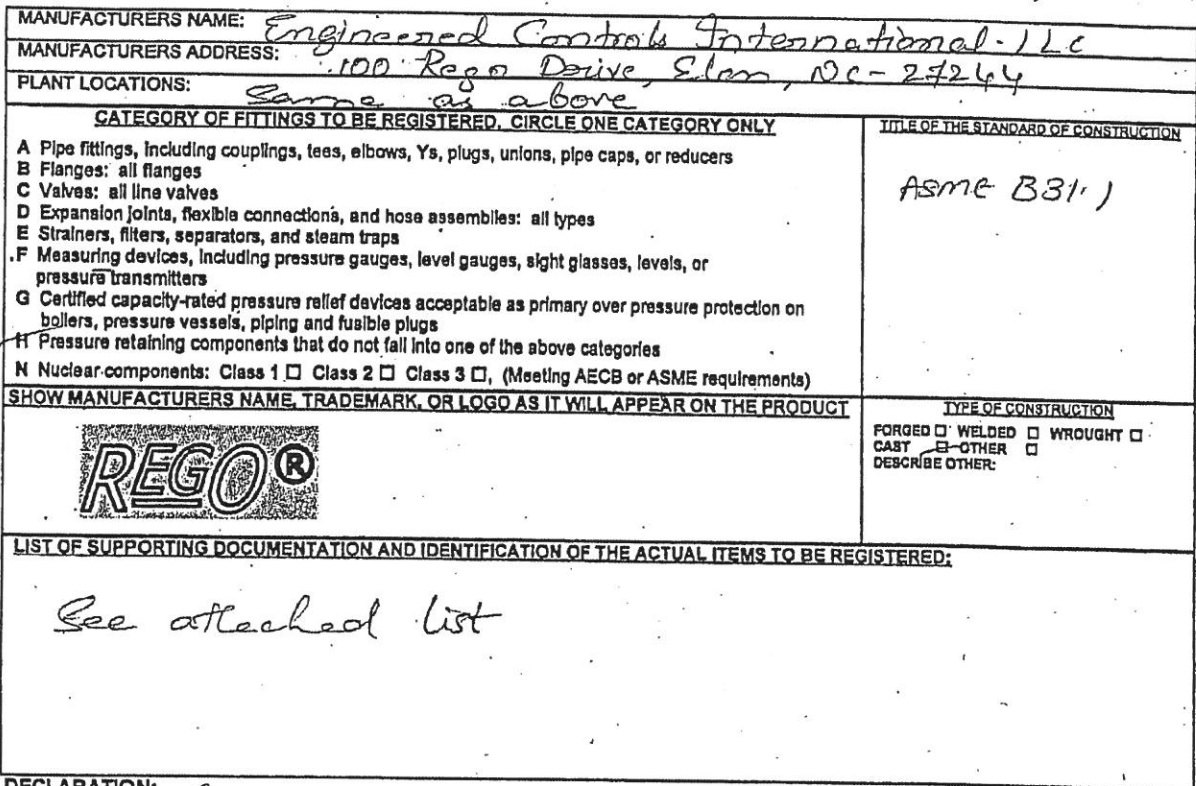 MANUFACTURERS NAME: Engineered Controls International-LLC
MANUFACTURERS ADDRESS: 100 Rego Drive, Elon, NC-27244
PLANT LOCATIONS: Same as above
CATEGORY OF FITTINGS TO BE REGISTERED, CIRCLE ONE CATEGORY ONLY
A Pipe fittings, including couplings, tees, elbows, Ys, plugs, unions, pipe caps, or reducers
B Flanges: all flanges
C Valves: all line valves
D Expansion joints, flexible connections, and hose assemblies: all types
E Strainers, filters, separators, and steam traps
F Measuring devices, including pressure gauges, level gauges, sight glasses, levels, or
pressure transmitters
G Certified capacity-rated pressure relief devices acceptable as primary over pressure protection on
boilers, pressure vessels, piping and fusible plugs
H Pressure retaining components that do not fall into one of the above categories
N Nuclear components: Class 1 □ Class 2 □ Class 3 □, (Meeting AECB or ASME requirements)
TITLE OF THE STANDARD OF CONSTRUCTION
ASME B31.1
SHOW MANUFACTURERS NAME, TRADEMARK, OR LOGO AS IT WILL APPEAR ON THE PRODUCT
REGO®
TYPE OF CONSTRUCTION
FORGED □ WELDED □ WROUGHT □
CAST □ OTHER □
DESCRIBE OTHER:
LIST OF SUPPORTING DOCUMENTATION AND IDENTIFICATION OF THE ACTUAL ITEMS TO BE REGISTERED:
See attached list
DECLARATION: